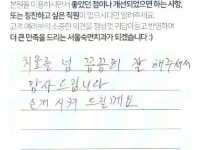 본원을 이용하시면서 좋았던 점이나 개선되었으면 하는 사항,
또는 칭찬하고 싶은 직원이 있으시다면 알려주세요.
고객 여러분의 소중한 의견을 정성껏 귀담아듣고 반영하여
더 큰 만족을 드리는 서울숙면치과가 되겠습니다 :)
치료를 넘 꼼꼼히 잘 해주셔서
감사드립니다
소개 시켜 드릴께요